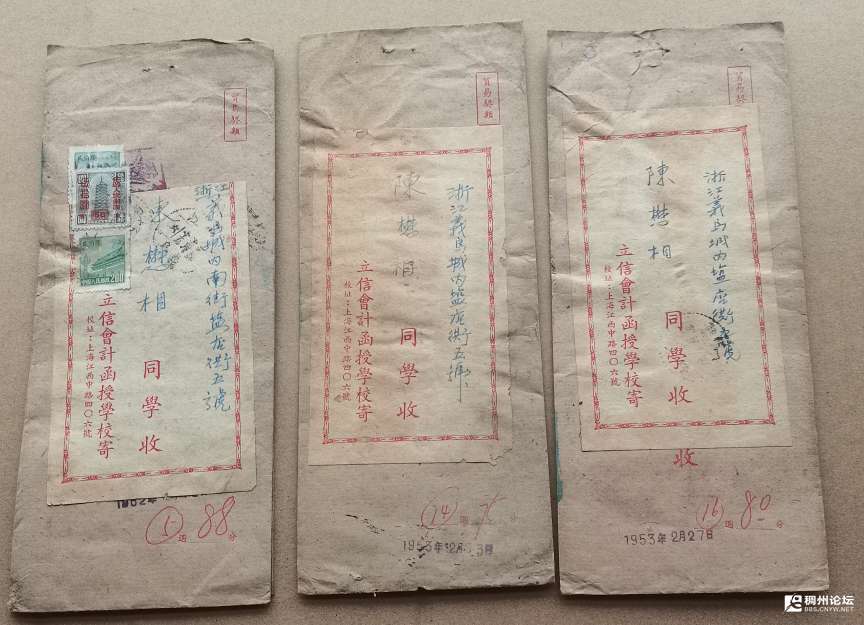 貿易契類
浙江義烏城內南街鹽店街五號
陳懋相
同學收
立信會計函授學校寄
校址：上海江西中路四〇六號
200
5
週
88
分
貿易契類
浙江義烏城內鹽店街五號
陳懋相
同學收
立信會計函授學校寄
校址：上海江西中路四〇六號
14
浙江義烏城內鹽店街
號
陳懋相
同學收
立信會計函授學校寄
校址：上海江西中路四〇六號
收
16
週
80
分
1953年2月27日
稠州论坛
BBS.CNYW.NET